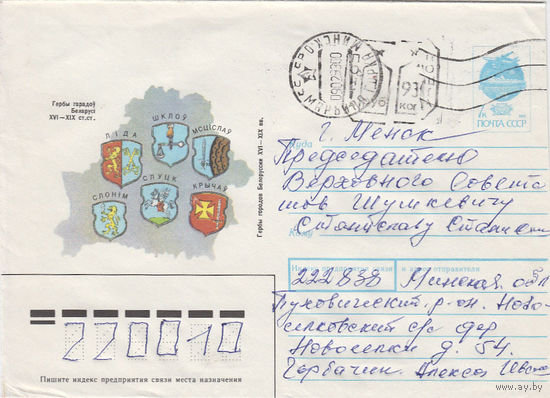 Гербы гарадоў
Беларусі
XVI—XIX ст.ст.
ЛІДА
ШКЛОЎ
МСЦІСЛАЎ
СЛОНІМ
СЛУЦК
КРЫЧАЎ
Гербы городов Белоруссии XVI—XIX вв.
93
коп
7к
ПОЧТА СССР
Куда
г. Менск
Председателю
Верховного Совета
Шушкевичу
Станіславу
Кому
Индекс предприятия связи и адрес отправителя
222838 Минская обл
Пуховический р-он. Ново-
селковский с/с дер
Новоселки д. 54.
Горбачик Алекса
220010
Пишите индекс предприятия связи места назначения
www.ay.by